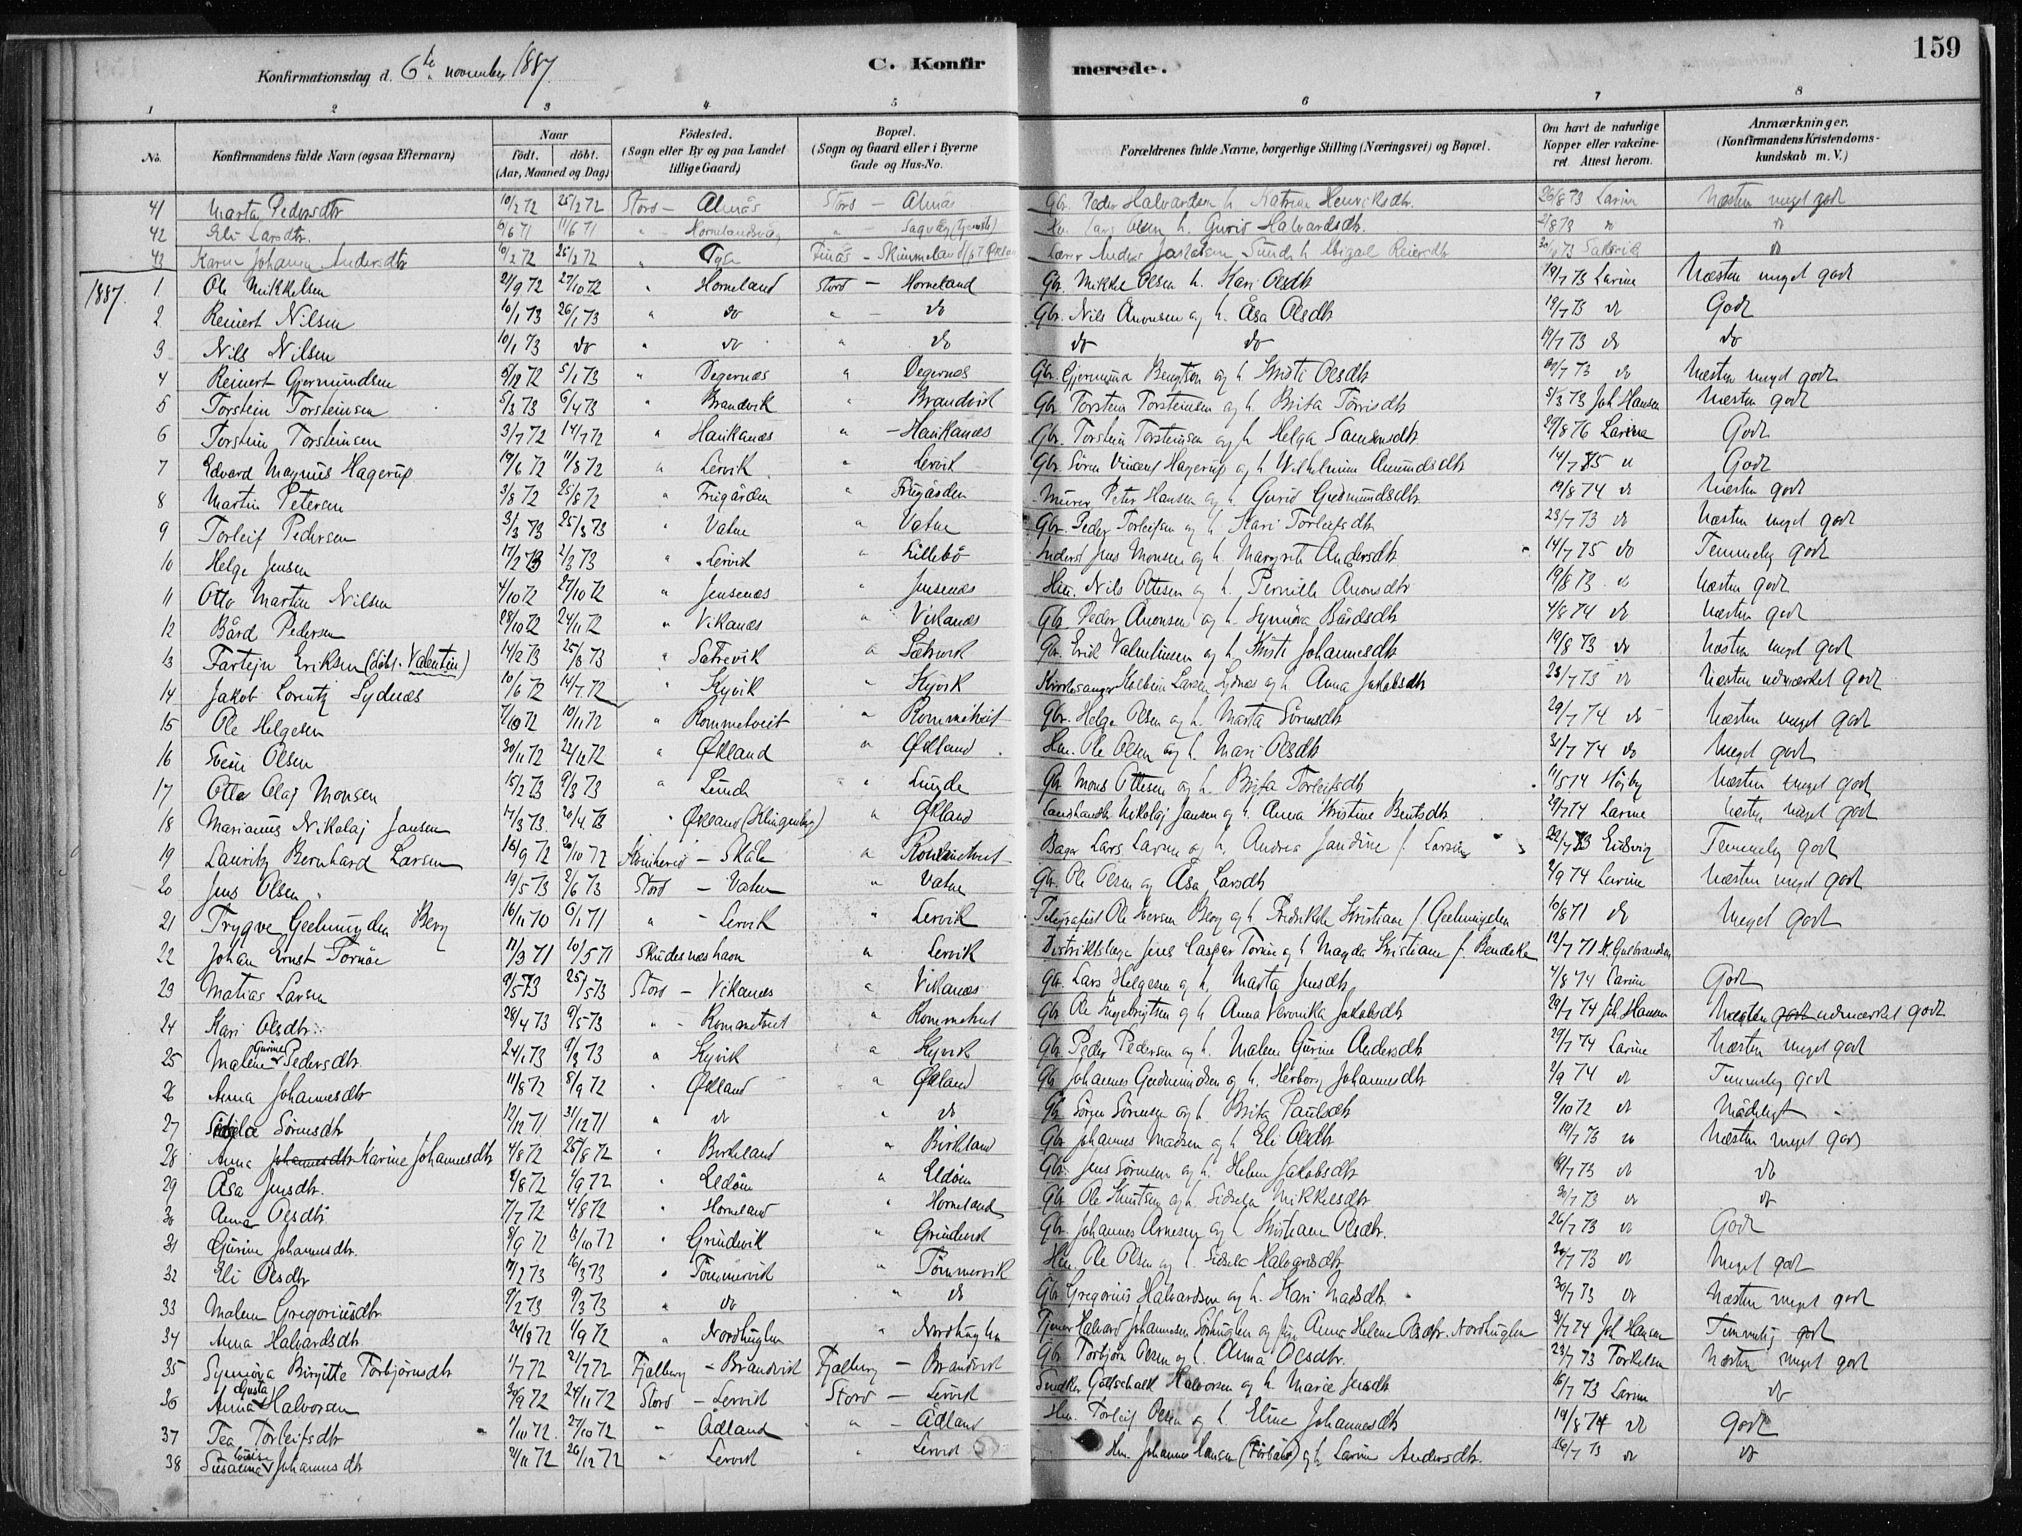 159
C. Konfirmerede.
Konfirmationsdag d. 6te november 1887.
1 2 3 4 5 6 7 8
No. Konfirmandens fulde Navn (ogsaa Efternavn) Naar födt. döbt. (Aar, Maaned og Dag) Födested. (Sogn eller By og paa Landet tillige Gaard) Bopæl. (Sogn og Gaard eller i Byerne Gade og Hus-No. Forældrenes fulde Navne, borgerlige Stilling (Næringsvei) og Bopæl. Om havt de naturlige Kopper eller vakcineret. Attest herom. Anmærkninger. (Konfirmandens Kristendomskundskab m. V.)
41 Marta Pedersdtr 10/2 72 25/2 72 Stord - Almås Stord - Almås Gbr. Peder Halvardsen h. Katrine Henriksdtr. 26/8 73 Larine Næsten meget godt
42 Eli Larsdtr. 6/6 71 11/6 71 " Hornelandsvåg Lars Olsen h. Gurid Halvardsdtr. do
43 Karen Johanna Andersdtr 10/2 72 25/2 72 " Finås - Skimmeland Anders Jakobsen Sunde h. Abigael Reiersdtr do
1887. 1 Ole Mikkelsen 21/9 72 27/10 72 " Horneland Stord - Horneland Gbr. Mikkel Olsen h. Kari Olsdtr 19/7 73 Larine Næsten meget godt
2 Reinert Nilsen 10/1 73 26/1 73 " do " - do Gbr. Nils Ånonsen og h. Åsa Olsdtr 19/7 73 do Godt
3 Nils Nilsen 10/1 73 do " do " do do do 19/7 73 do do
4 Reinert Gjermundsen 5/12 72 5/1 73 " Degernæs " Degernæs Gbr. Gjermund Bengtsen og h. Kristi Olsdtr do Næsten meget godt
5 Torstein Torsteinsen 5/3 73 6/4 73 " Brandvik " Brandvik Gbr. Torstein Torsteinsen og h. Brita Tørrisdtr 5/3 73 Joh Hansen Næsten godt
6 Torstein Torsteinsen 3/7 72 14/7 72 " Haukanæs " - Haukanæs Gbr. Torstein Torsteinsen og h. Helga Samsonsdtr 29/8 76 Larine Godt
7 Edvard Magnus Hagerup 19/6 72 11/8 72 " Lervik " Lervik Gbr. Sören Vincent Hagerup og h. Wilhelmine Amundsdtr 14/7 85 " Godt
8 Martin Petersen 3/8 72 25/8 72 " Frugården " Frugården Murer Peter Hansen og h. Gurid Gudmundsdtr 19/8 74 do Næsten godt
9 Torleif Pedersen 3/3 73 25/3 73 " Vatne " Vatne Gbr. Peder Torleifsen og h. Kari Torleifsdtr 23/7 73 do Næsten meget godt
10 Helge Jensen 17/2 73 2/3 73 " Lervik " Lillebö Inderst Jens Monsen og h. Margrete Andersdtr 14/7 75 do Temmelig godt
11 Otto Martin Nilsen 4/10 72 27/10 72 " Jensenæs " Jensenæs Hm. Nils Ottesen og h. Pernille Anonsdtr 19/8 73 do Næsten godt
12 Bård Pedersen 28/10 72 24/11 72 " Vikanæs " Vikanæs Gbr. Peder Anonsen og h. Synnöva Bårdsdtr 4/8 74 do Næsten godt
13 Fartejn Eriksen (døbt. Valentin) 14/2 73 25/3 73 " Sætrevik " Sætrevik Gbr. Erik Valentinsen og h. Kristi Johannesdtr 19/8 73 do Næsten meget godt
14 Jakob Lorentz Sydnæs 10/6 72 14/7 72 " Kyvik " Kyvik Kirkesanger Kolbein Larsen Sydnæs og h. Anna Jakobsdtr 23/7 73 do Næsten udmærket godt
15 Ole Helgesen 7/10 72 10/11 72 " Rommetveit " Rommetveit Gbr. Helge Olsen og h. Marta Sörensdtr 29/7 74 do Næsten meget godt
16 Svein Olsen 30/11 72 22/12 72 " Økland " Økland Hm. Ole Olsen og h. Mari Olsdtr 31/7 74 do Meget godt
17 Otto Olaj Monsen 15/2 73 9/3 73 " Lunde " Lunde Gbr Mons Ottesen og h. Brita Torleifsdtr Næsten meget godt
18 Marianus Nikolaj Jansen 17/3 73 20/4 73 " Økland (Klingenberg) " Økland Landhandler Nikolaj Jansen og h. Anna Kristine Bentsdtr 29/7 74 Larine Næsten meget godt
19 Lauritz Bernhard Larsen 16/9 72 20/10 72 - Skåle " Rommetveit Bager Lars Larsen og h. Andrea Jandine f. Larsen 22/7 73 Temmelig godt
20 Jens Olsen. 19/5 73 2/6 73 Stord - Vatne " Vatne Gbr. Ole Olsen og Åsa Larsdtr 2/9 74 Larine Næsten meget godt
21 Trygve Geelmuyden Berg 16/11 70 6/1 71 " - Lervik " Lervik Telegrafist Ole Iversen Berg og h. Fredrikke Kristiane f. Geelmuyden 10/8 71 do Meget godt
22 Johan Ernst Tornöe 17/3 71 10/5 71 Skudesnæshavn " Lervik Distriktslæge Jens Casper Tornöe og h. Magda Kristiane f. Bendeke 12/7 71 H. Gulbrandsen
23 Matias Larsen 9/5 73 25/5 73 Stord - Vikanæs " Vikanæs Gbr. Lars Helgesen og h. Marta Jensdtr 4/8 74 Larine Godt
24 Kari Olsdtr. 28/4 73 9/5 73 " - Rommetveit " Rommetveit Gbr. Ole Ingebrigtsen og h. Anna Veronika Jakobsdtr 29/7 74 Joh. Hansen Næsten godt udmærket godt
25 Malene Gurine Pedersdtr. 24/1 73 9/2 73 " Kyvik " Kyvik Gbr. Peder Pedersen og h. Malene Gurine Andersdtr 29/7 74 Larine Næsten meget godt
26 Anna Johannesdtr 11/8 72 8/9 72 " Økland " Økland Gbr Johannes Gudmundsen og h. Herborg Johannesdtr 2/9 74 do Temmelig godt
27 Sörensdtr 12/12 71 31/12 71 " do " do Gbr. Sören Sörensen og h. Brita Paulsdtr 9/10 72 do Mådeligt
28 Anna Johannesdtr Karine Johannesdtr 4/8 72 25/8 72 " Birkeland " Birkeland Gbr. Johannes Madsen og h. Eli Olsdtr 19/7 73 do Næsten meget godt
29 Åsa Jensdtr. 8/8 72 1/9 72 " Eldöen " Eldöen Gbr. Jens Sörensen og h. Helene Jakobsdtr 19/7 73 do do
30 Anna Olsdtr 7/7 72 4/8 72 " Horneland " Horneland Gbr. Ole Knutsen og h. Sidsela Mikkelsdtr 30/7 73 do do
31 Gurine Johannesdtr. 8/9 72 13/10 72 " Grindevik " Grindevik Gbr. Johannes Arnesen og h. Kristiane Olsdtr. 26/7 73 do Godt
32 Eli Olsdtr 7/2 73 16/3 73 " Tömmervik " Tömmervik Hm. Ole Olsen og h. Sidsela Halvardsdtr 24/7 73 do Meget godt
33 Malene Gregoriusdtr 9/2 73 9/3 73 " do " do Gbr. Gregorius Halvardsen og h. Kari Madsdtr. 30/7 73 do Næsten meget godt
34 Anna Halvardsdtr. 24/8 72 1/9 72 " Nordhuglen " Nordhuglen Tjener Halvard Johannesen Sörhuglen og pige Anna Helene Olsdtr. Nordhuglen 31/7 74 Joh Hansen Temmelig godt
35 Synnöva Birgitte Torbjörnsdtr 1/7 72 21/7 72 Fjælberg - Brandvik Fjælberg - Brandvik Gbr Torbjörn Olsen og h. Anna Olsdtr. 23/7 73 Torkelsen Næsten meget godt
36 Anna Gusta Halvorsen 30/9 72 24/11 72 Stord - Lervik Stord - Lervik Snedker Gottschalk Halvorsen og h. Marie Jensdtr 16/7 73 Larine do
37 Tea Torleifsdtr 7/10 72 27/10 72 " Ådland " - Ådland Hm. Torleif Olsen og h. Eline Johannesdtr 19/8 74 do Godt
38 Susanna Lovise Johannesdtr 9/11 72 26/12 72 " Lervik " Lervik Hm. Johannes Hansen og h. Larine Andersdtr. 16/7 73 do do